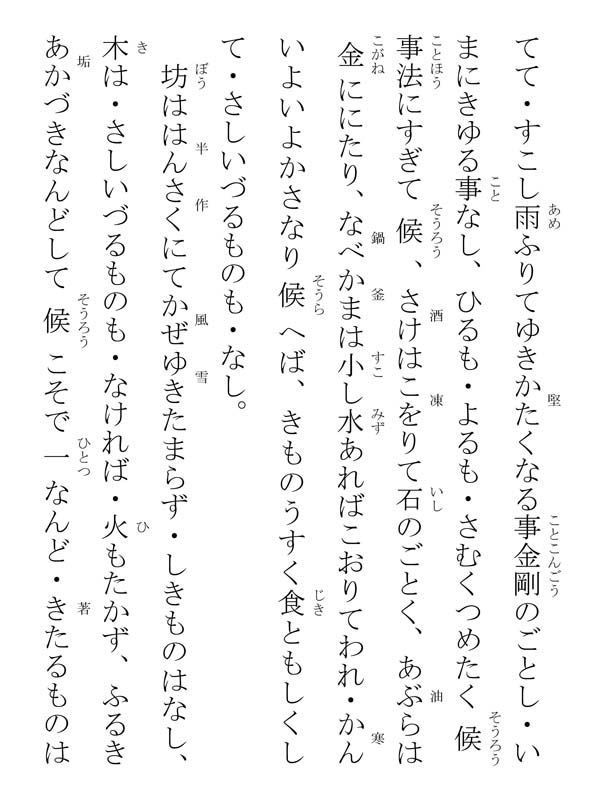 てて・すこし雨ふりてゆきかたくなる事金剛のごとし・い
まにきゆる事なし、ひるも・よるも・さむくつめたく候
事法にすぎて候、さけはこをりて石のごとく、あぶらは
金ににたり、なべかまは小し水あればこおりてわれ・かん
いよいよかさなり候へば、きものうすく食ともしくし
て・さしいづるものも・なし。
坊ははんさくにてかぜゆきたまらず・しきものはなし、
木は・さしいづるものも・なければ・火もたかず、ふるき
あかづきなんどして候こそで一なんど・きたるものは